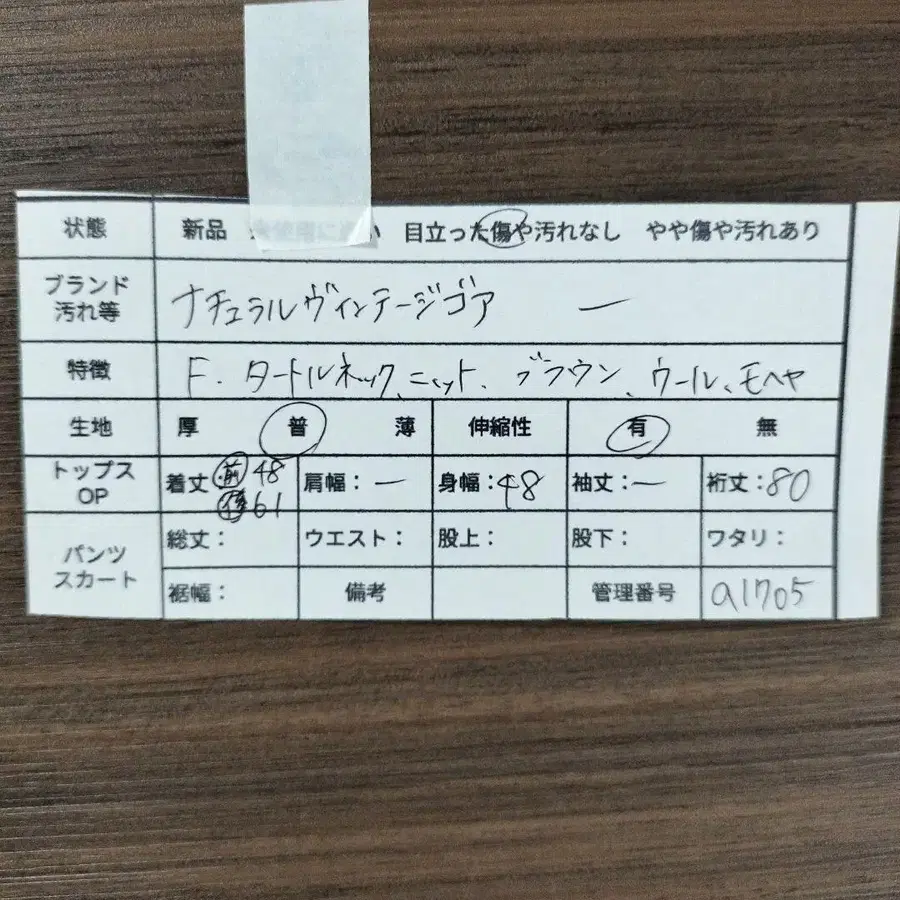 状態 新品 い 目立った傷や汚れなし やや傷や汚れあり
ブランド 汚れ等 ナチュラルヴィンテージゴア ー
特徴 F. タートルネック、ニット、ブラウン、ウール、モヘヤ
生地 厚 普 薄 伸縮性 有 無
トップス OP 着丈 前 48 後 61 肩幅：ー 身幅：48 袖丈：ー 裄丈：80
パンツ スカート 総丈： ウエスト： 股上： 股下： ワタリ：
裾幅： 備考 管理番号 a1705